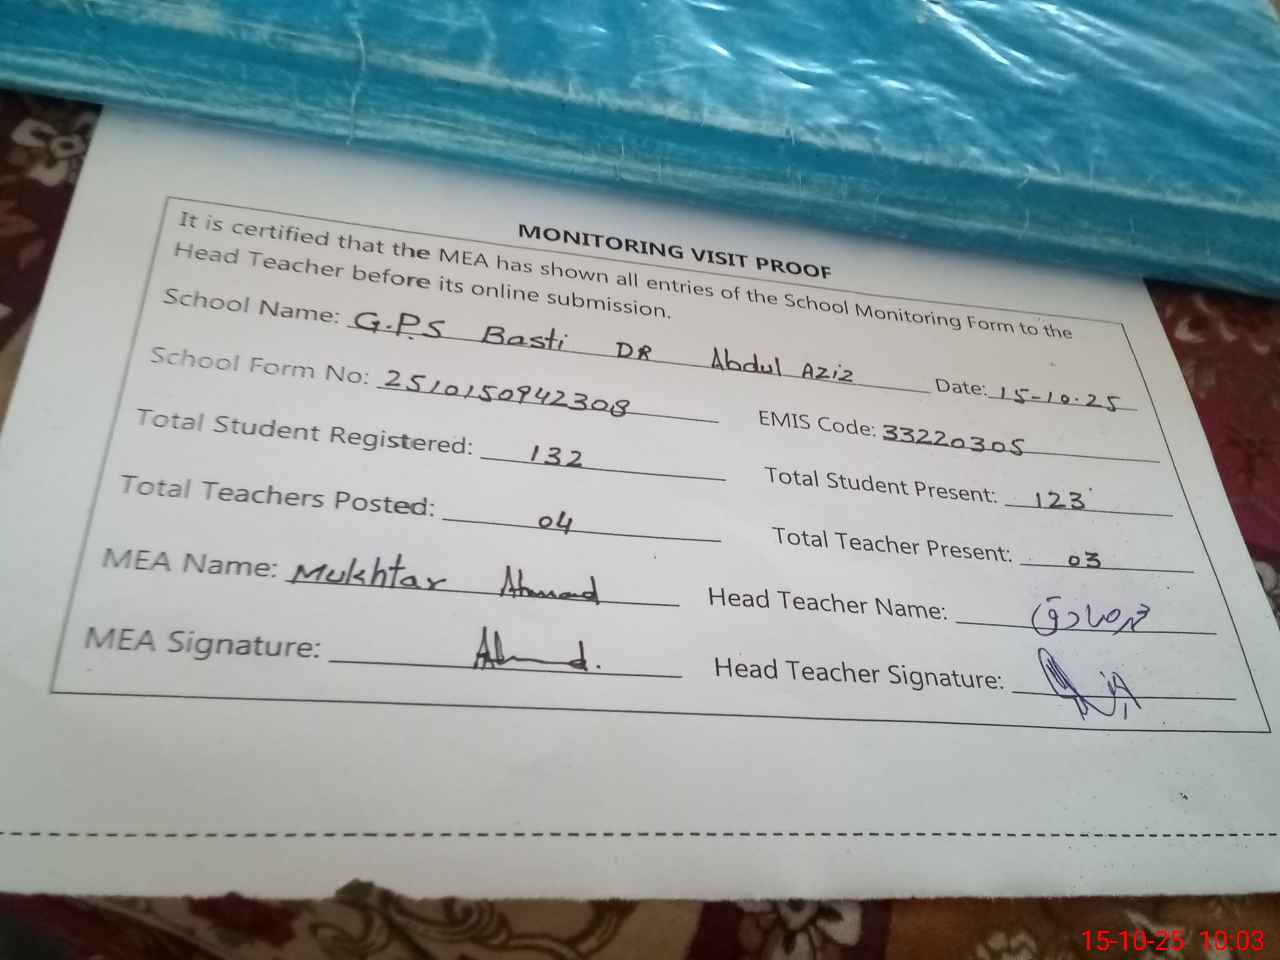 MONITORING VISIT PROOF
It is certified that the MEA has shown all entries of the School Monitoring Form to the
Head Teacher before its online submission.
School Name: G.P.S Basti DR Abdul Aziz Date: 15-10-25
School Form No: 2510150942308 EMIS Code: 33220305
Total Student Registered: 132 Total Student Present: 123
Total Teachers Posted: 04 Total Teacher Present: 03
MEA Name: Mukhtar Ahmad Head Teacher Name: محمد صادق
MEA Signature: Head Teacher Signature:
15-10-25 10:03